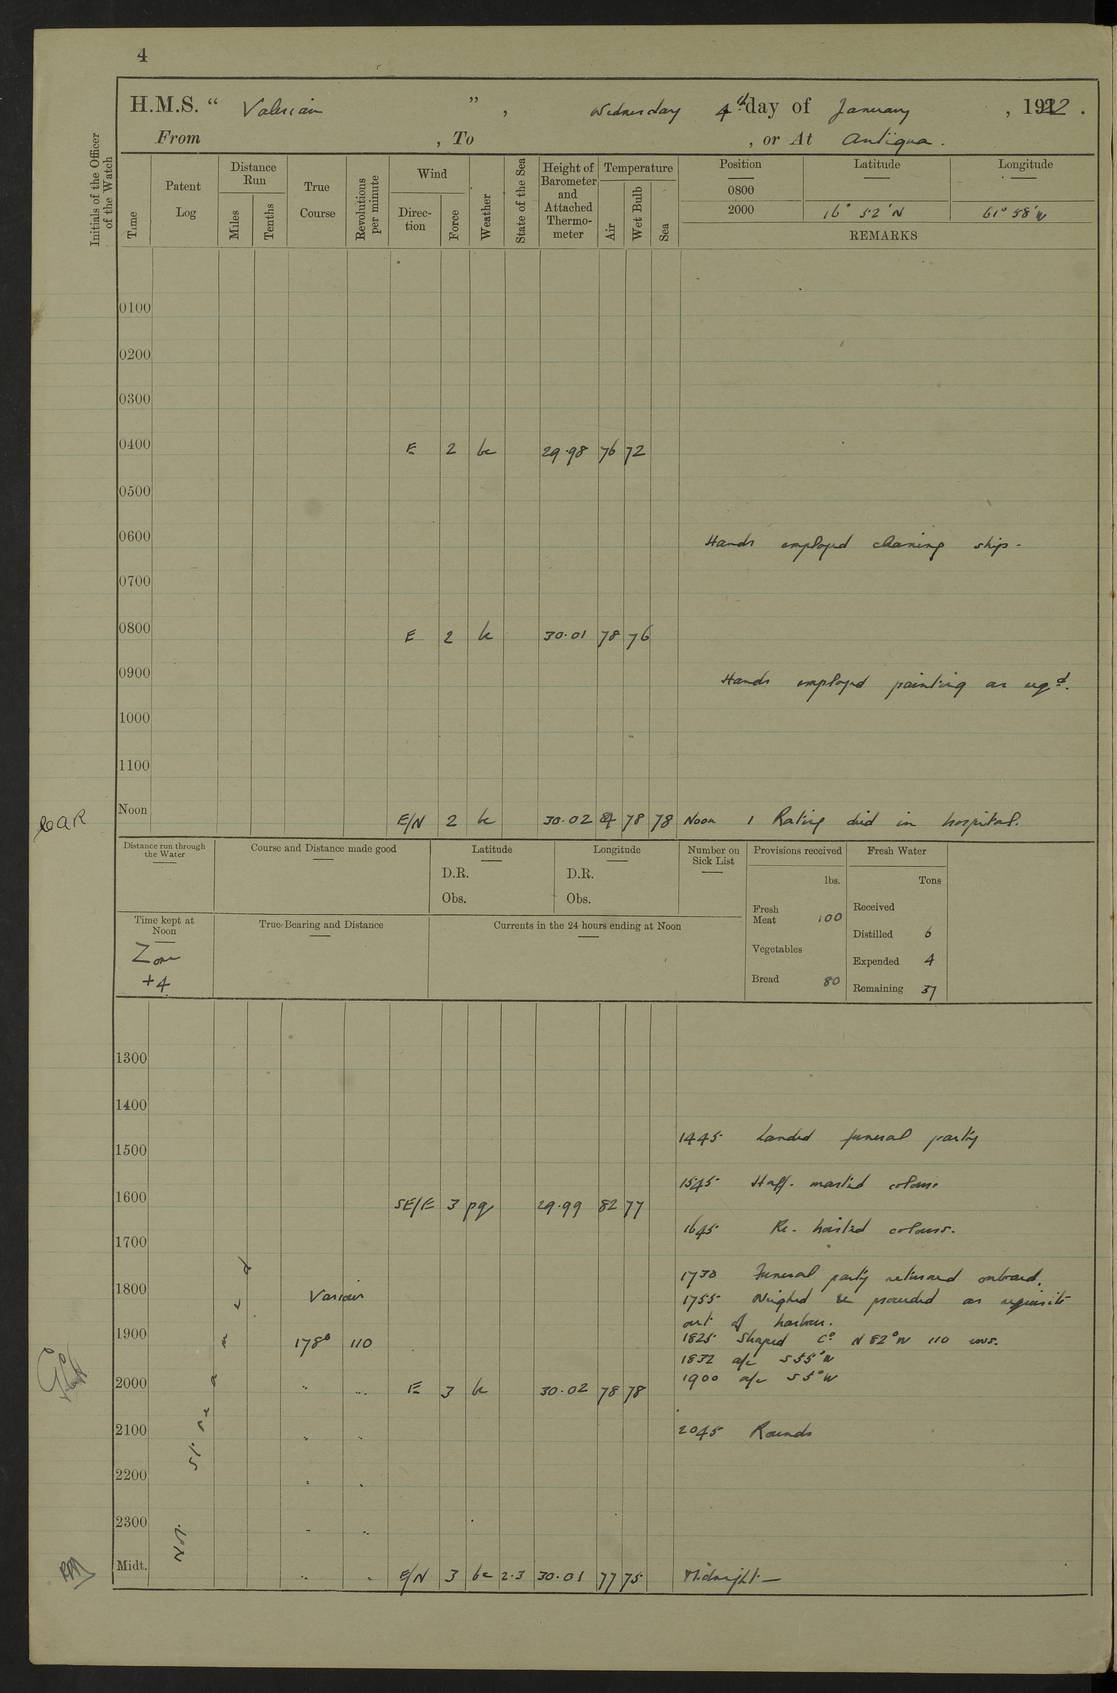 4
H.M.S. " Valerian ", Wednesday 4th day of January, 1922.
From , To , or At Antigua.
Initials of the Officer of the Watch
Time
Patent Log
Distance Run
Miles
Tenths
True Course
Revolutions per minute
Wind
Direction
Force
Weather
State of the Sea
Height of Barometer and Attached Thermometer
Temperature
Air
Wet Bulb
Sea
Position Latitude Longitude
0800
2000 16° 52' N 61° 58' W
REMARKS
0100
0200
0300
0400 E 2 bc 29.98 76 72
0500
0600 Hands employed cleaning ship.
0700
0800 E 2 bc 30.01 78 76
0900 Hands employed painting as reqd.
1000
1100
Noon E/N 2 bc 30.02 78 78 Noon 1 Rating died in hospital.
Distance run through the Water
Course and Distance made good
Latitude
D.R.
Obs.
Longitude
D.R.
Obs.
Number on Sick List
Provisions received
lbs.
Fresh Meat 100
Vegetables
Bread 80
Fresh Water
Tons
Received
Distilled 6
Expended 4
Remaining 37
Time kept at Noon
Zone
+4
True Bearing and Distance
Currents in the 24 hours ending at Noon
1300
1400
1445 Landed funeral party
1500
1545 Half-masted colours
1600 SE/E 3 pq 29.99 82 77
1645 Re-hoisted colours.
1700
1730 Funeral party returned onboard.
1800 Various
1755 Weighed & proceeded as requisite
out of harbour.
1900 178° 110
1825 Shaped Co N 82° W 110 revs.
1832 a/c S 55° W
1900 a/c S 5° W
2000 " " E 3 bc 30.02 78 78
2045 Rounds
2100 " "
2200 " "
2300 " "
Midt. " " E/N 3 bc 2.3 30.01 77 75 Midnight—
Not streamed